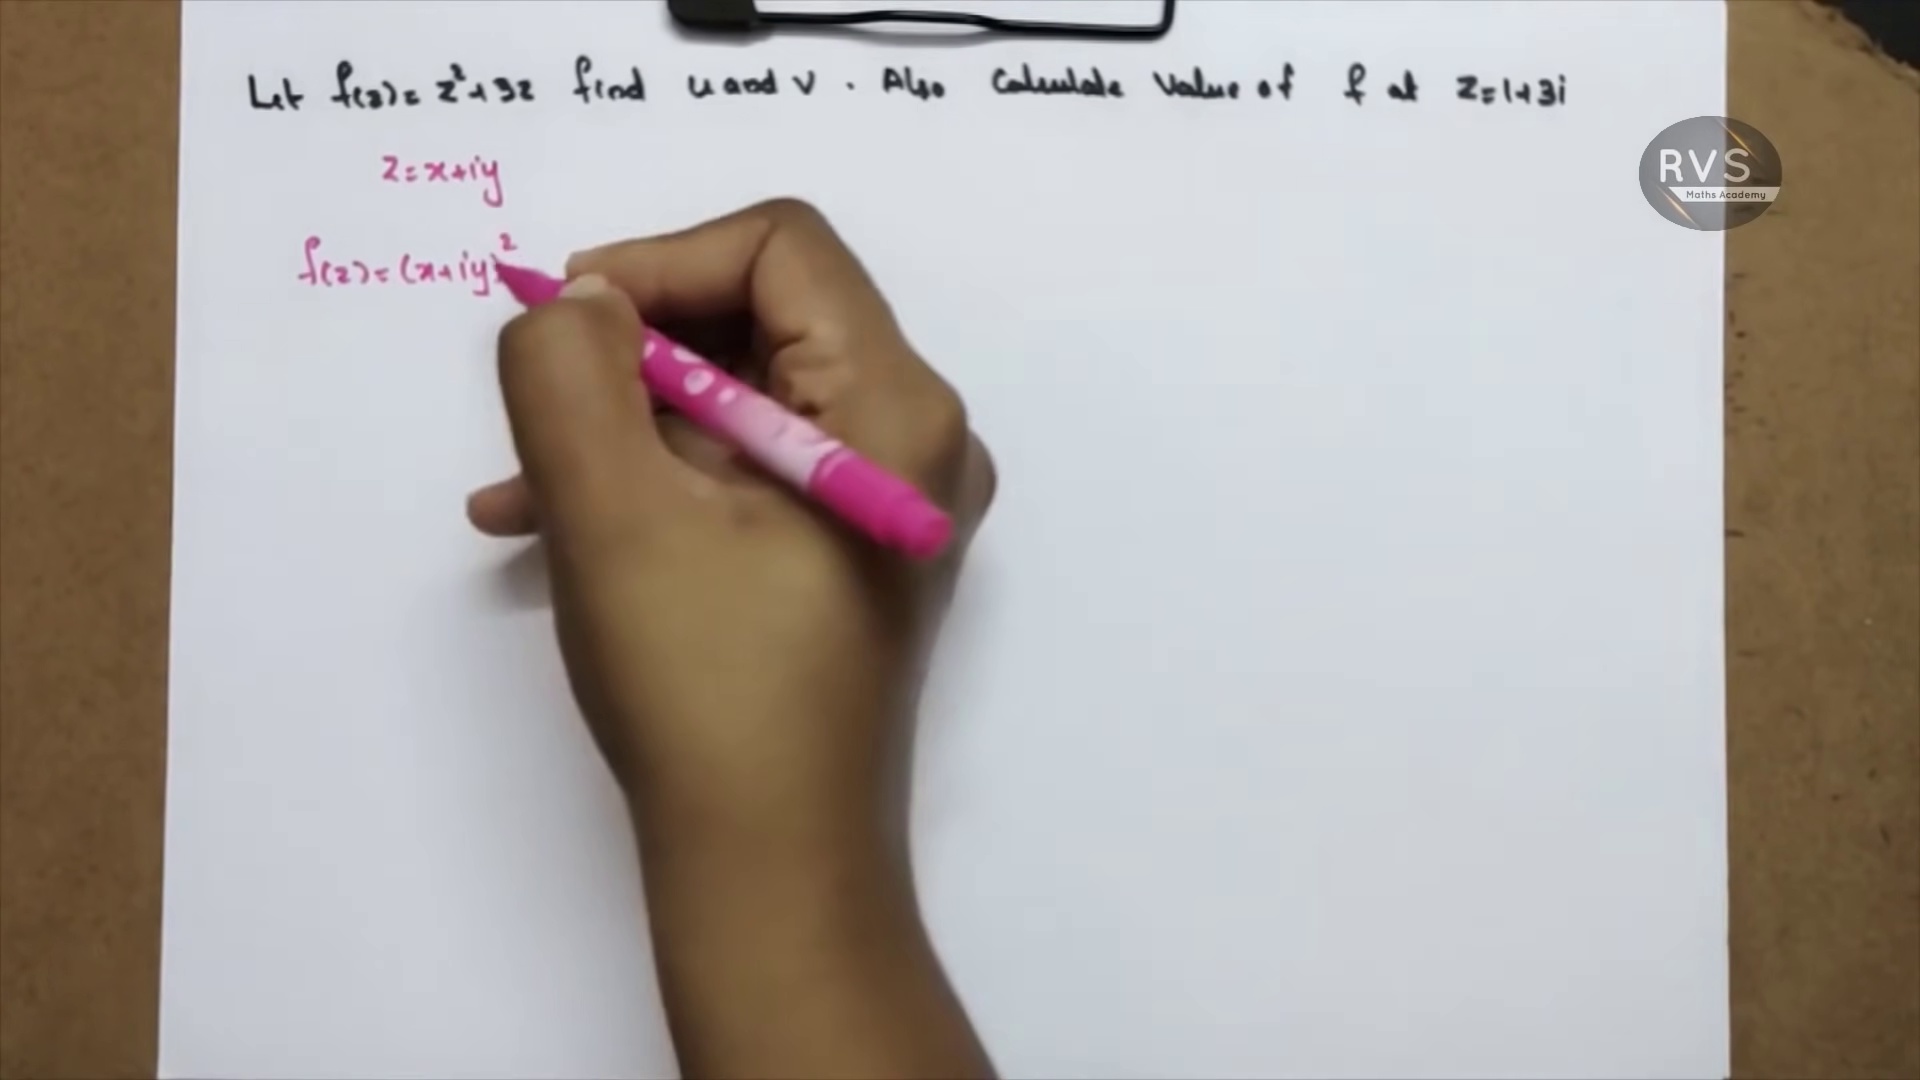 Let f(z)= z²+3z find u and v. Also Calculate Value of f at z=1+3i
RVS
Maths Academy
z=x+iy
f(z)=(x+iy)²